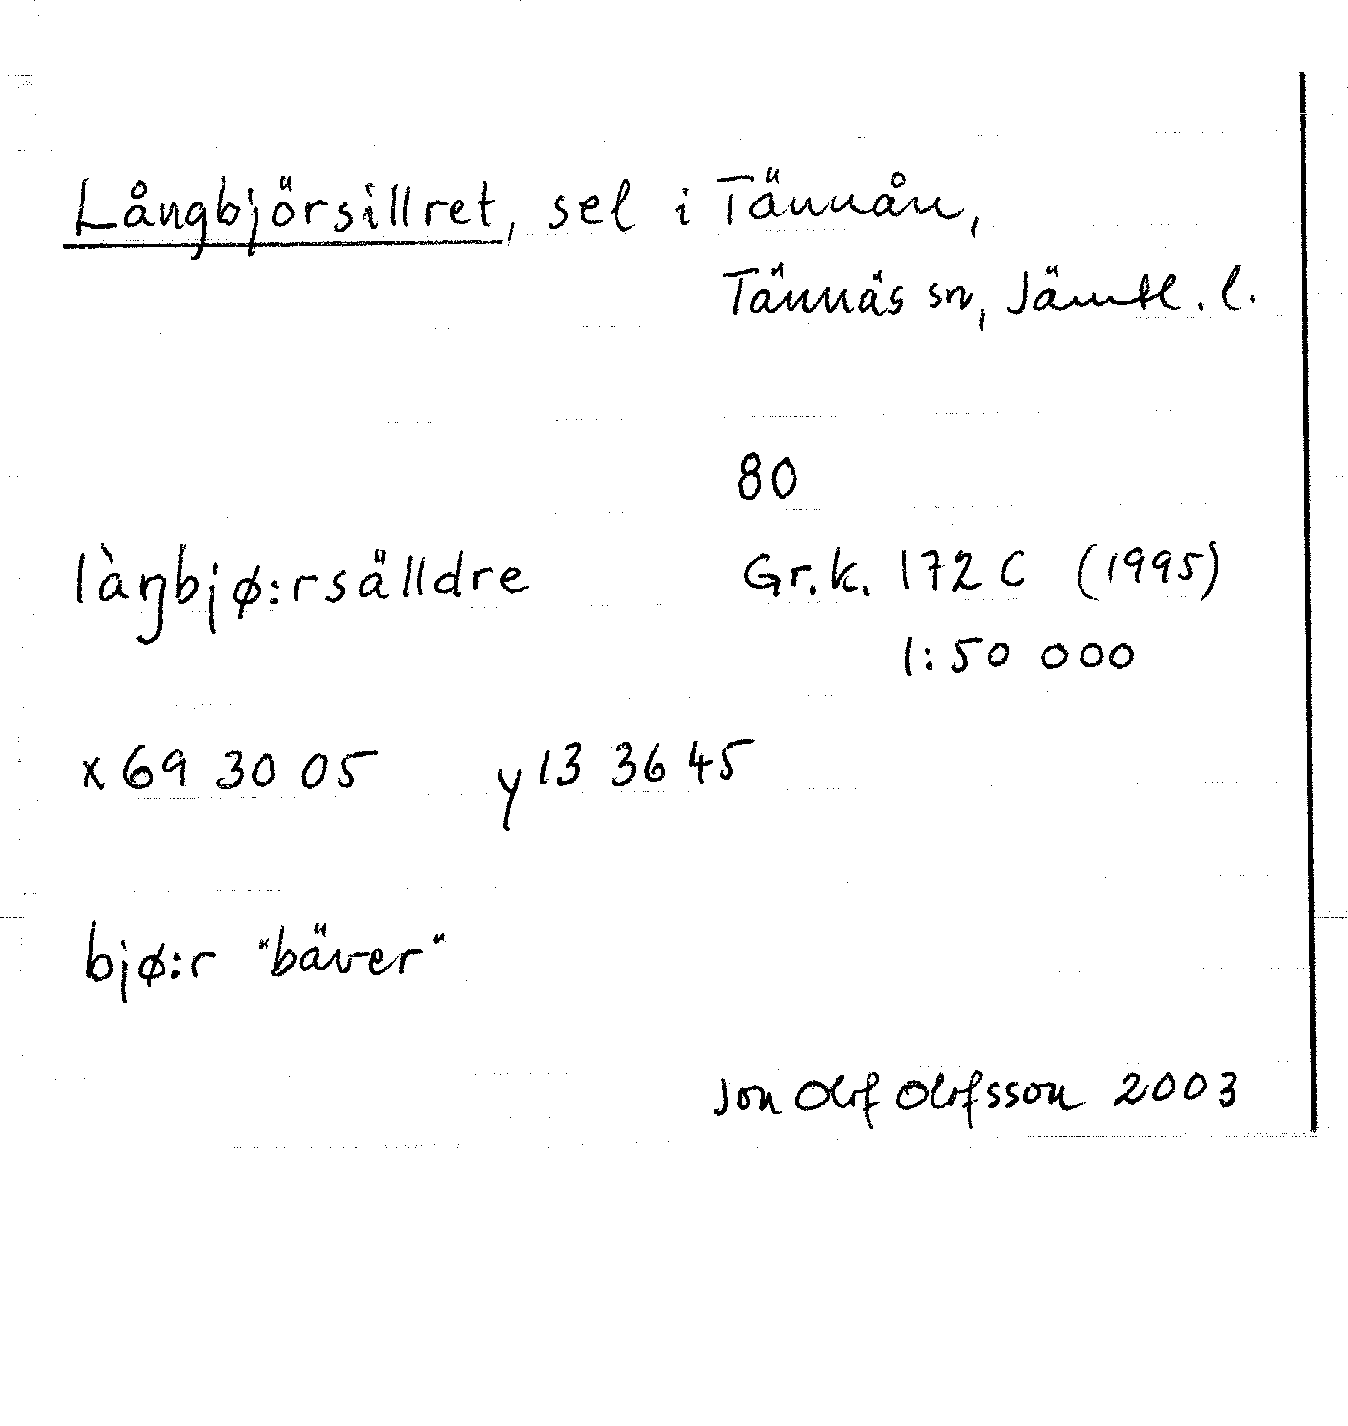 Långbjörsillret, sel i Tännån,
Tännäs sn, Jämtl. l.
80
làŋbjø:rsälldre Gr.k. 172 C (1995)
1:50 000
x 69 30 05 y 13 36 45
bjø:r "bäver"
Jon Olof Olofsson 2003